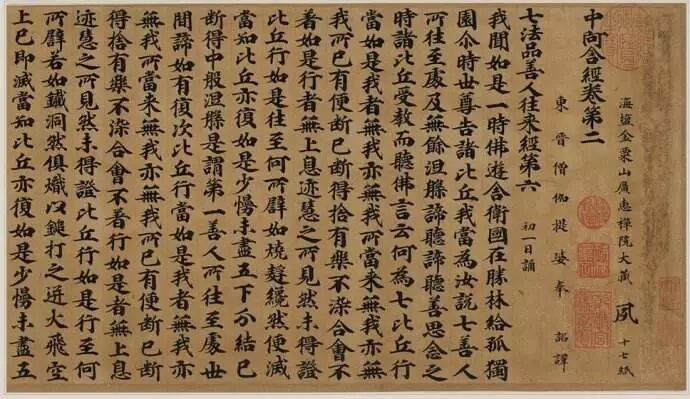 海鹽金粟山廣惠禪院大藏 夙 十七紙
中阿含經卷第二
東晉僧伽提婆奉 詔譯
七法品善人往来經第六 初一日誦
我聞如是一時佛遊舍衛國在勝林給孤獨
園尒時世尊告諸比丘我當為汝說七善人
所往至處及無餘涅槃諦聽諦聽善思念之
時諸比丘受教而聽佛言云何為七比丘行
當如是我者無我亦無我所當来無我亦無
我所已有便斷已斷得捨有樂不染合會不
著如是行者無上息迹慧之所見然未得證
比丘行如是往至何所辟如燒䴬纔然便滅
當知比丘亦復如是少慢未盡五下分結已
斷得中般涅槃是謂第一善人所往至處世
間諦如有復次比丘行當如是我者無我亦
無我所當来無我亦無我所已有便斷已斷
得捨有樂不染合會不著行如是者無上息
迹慧之所見然未得證比丘行如是行至何
所辟若如鐵洞然俱熾以鎚打之迸火飛空
上已即滅當知比丘亦復如是少慢未盡五